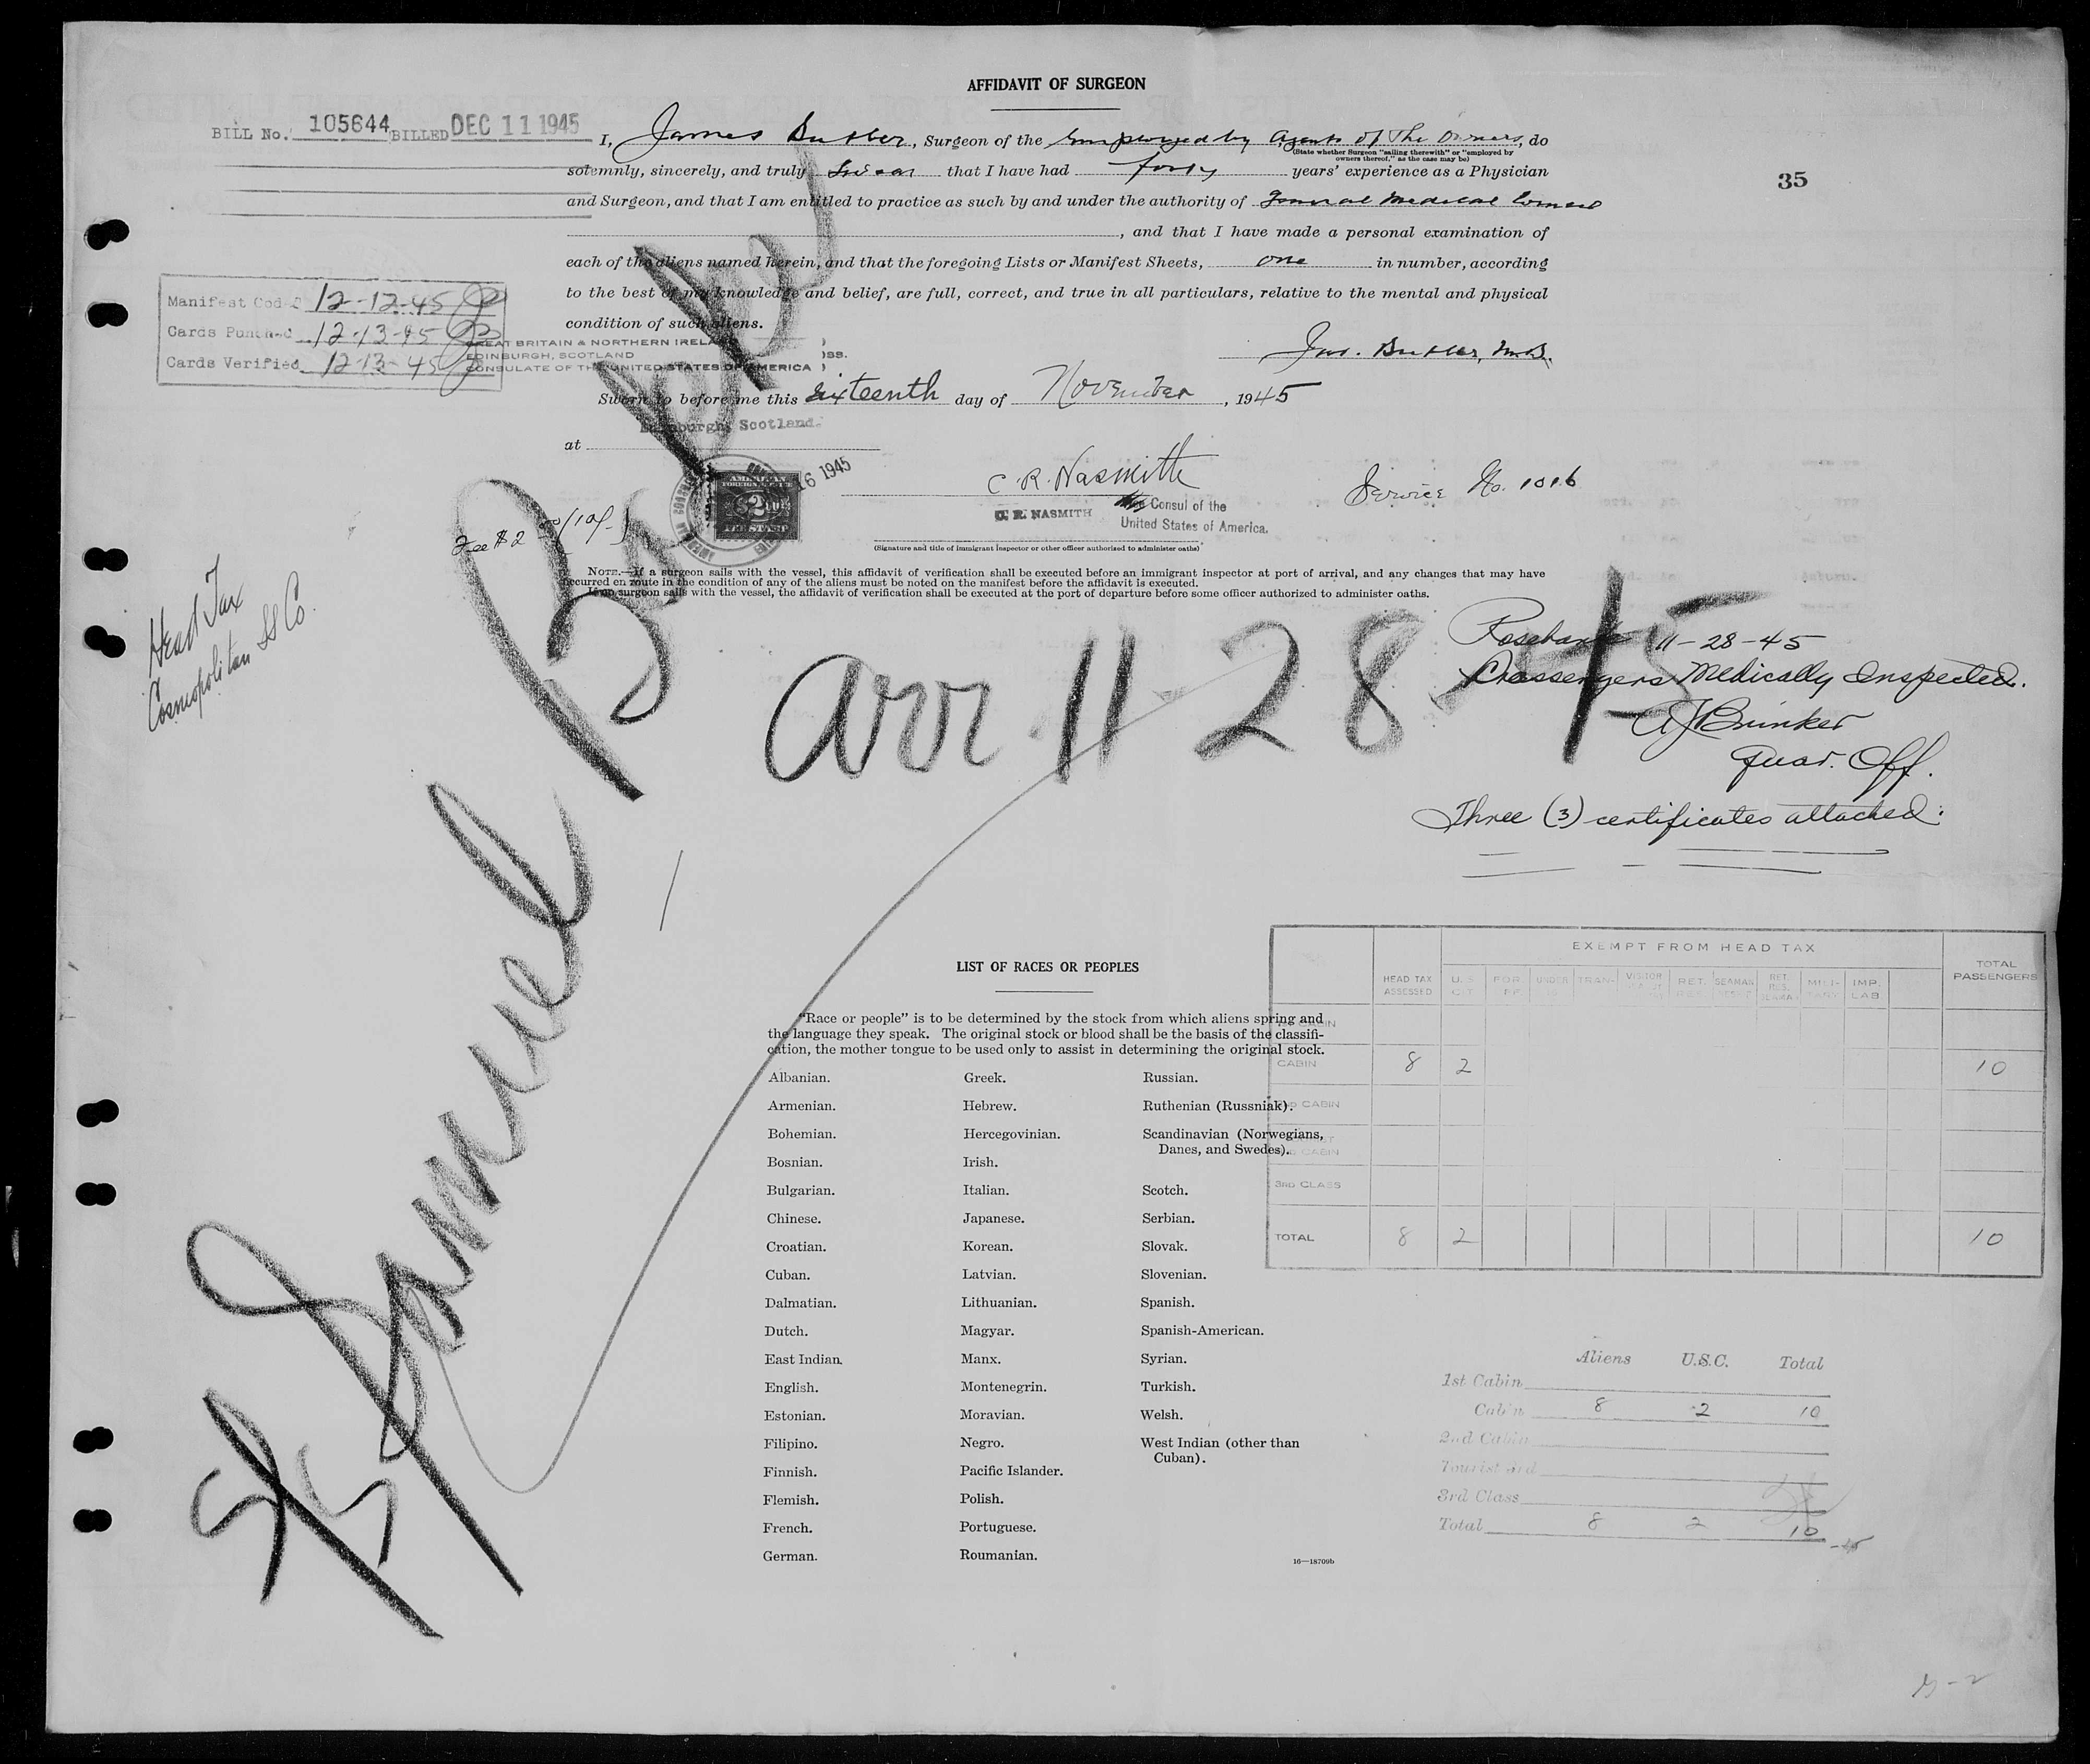 AFFIDAVIT OF SURGEON
BILL No. 105644 BILLED DEC 11 1945
35
I, James Butler, Surgeon of the employed by Agents of The Owners, do
(State whether Surgeon "sailing therewith" or "employed by
owners thereof," as the case may be)
solemnly, sincerely, and truly Swear that I have had forty years' experience as a Physician
and Surgeon, and that I am entitled to practice as such by and under the authority of General Medical
, and that I have made a personal examination of
each of the aliens named herein, and that the foregoing Lists or Manifest Sheets, one in number, according
to the best of my knowledge and belief, are full, correct, and true in all particulars, relative to the mental and physical
condition of such aliens.
Manifest Cod 12-12-45
Cards Punched 12-13-45
Cards Verified 12-13-45
GREAT BRITAIN & NORTHERN IRELA
EDINBURGH, SCOTLAND
CONSULATE OF THE UNITED STATES OF AMERICA
) SS.
Jas. Butler, M.B.
Sworn to before me this Sixteenth day of November, 1945
at Edinburgh, Scotland.
16 1945
AMERICAN
FOREIGN SERVICE
$2
FEE STAMP
Fee $2
C. R. Nasmith
C. R. NASMITH
Consul of the
United States of America.
Service No. 1016
(Signature and title of immigrant inspector or other officer authorized to administer oaths)
NOTE.—If a surgeon sails with the vessel, this affidavit of verification shall be executed before an immigrant inspector at port of arrival, and any changes that may have
occurred en route in the condition of any of the aliens must be noted on the manifest before the affidavit is executed.
If no surgeon sails with the vessel, the affidavit of verification shall be executed at the port of departure before some officer authorized to administer oaths.
Head Tax
Cosmopolitan SS Co.
S/S Samuel
arr 11-28-45
Rosebank 11-28-45
Passengers Medically Inspected.
AJ Brinker
Quar. Off.
Three (3) certificates attached.
EXEMPT FROM HEAD TAX
HEAD TAX ASSESSED
U.S. CIT
FOR.
UNDER
TRAN-
VISITOR
RET. RES.
SEAMAN
RET. RES.
MILI-
IMP. LAB
TOTAL PASSENGERS
CABIN 8 2 10
CABIN
CABIN
3RD CLASS
TOTAL 8 2 10
LIST OF RACES OR PEOPLES
"Race or people" is to be determined by the stock from which aliens spring and
the language they speak. The original stock or blood shall be the basis of the classifi-
cation, the mother tongue to be used only to assist in determining the original stock.
Albanian. Greek. Russian.
Armenian. Hebrew. Ruthenian (Russniak).
Bohemian. Hercegovinian. Scandinavian (Norwegians,
Danes, and Swedes).
Bosnian. Irish.
Bulgarian. Italian. Scotch.
Chinese. Japanese. Serbian.
Croatian. Korean. Slovak.
Cuban. Latvian. Slovenian.
Dalmatian. Lithuanian. Spanish.
Dutch. Magyar. Spanish-American.
East Indian. Manx. Syrian.
English. Montenegrin. Turkish.
Estonian. Moravian. Welsh.
Filipino. Negro. West Indian (other than
Cuban).
Finnish. Pacific Islander.
Flemish. Polish.
French. Portuguese.
German. Roumanian.
16—18709b
Aliens U.S.C. Total
1st Cabin
Cabin 8 2 10
2nd Cabin
Tourist 3rd
3rd Class
Total 8 2 10